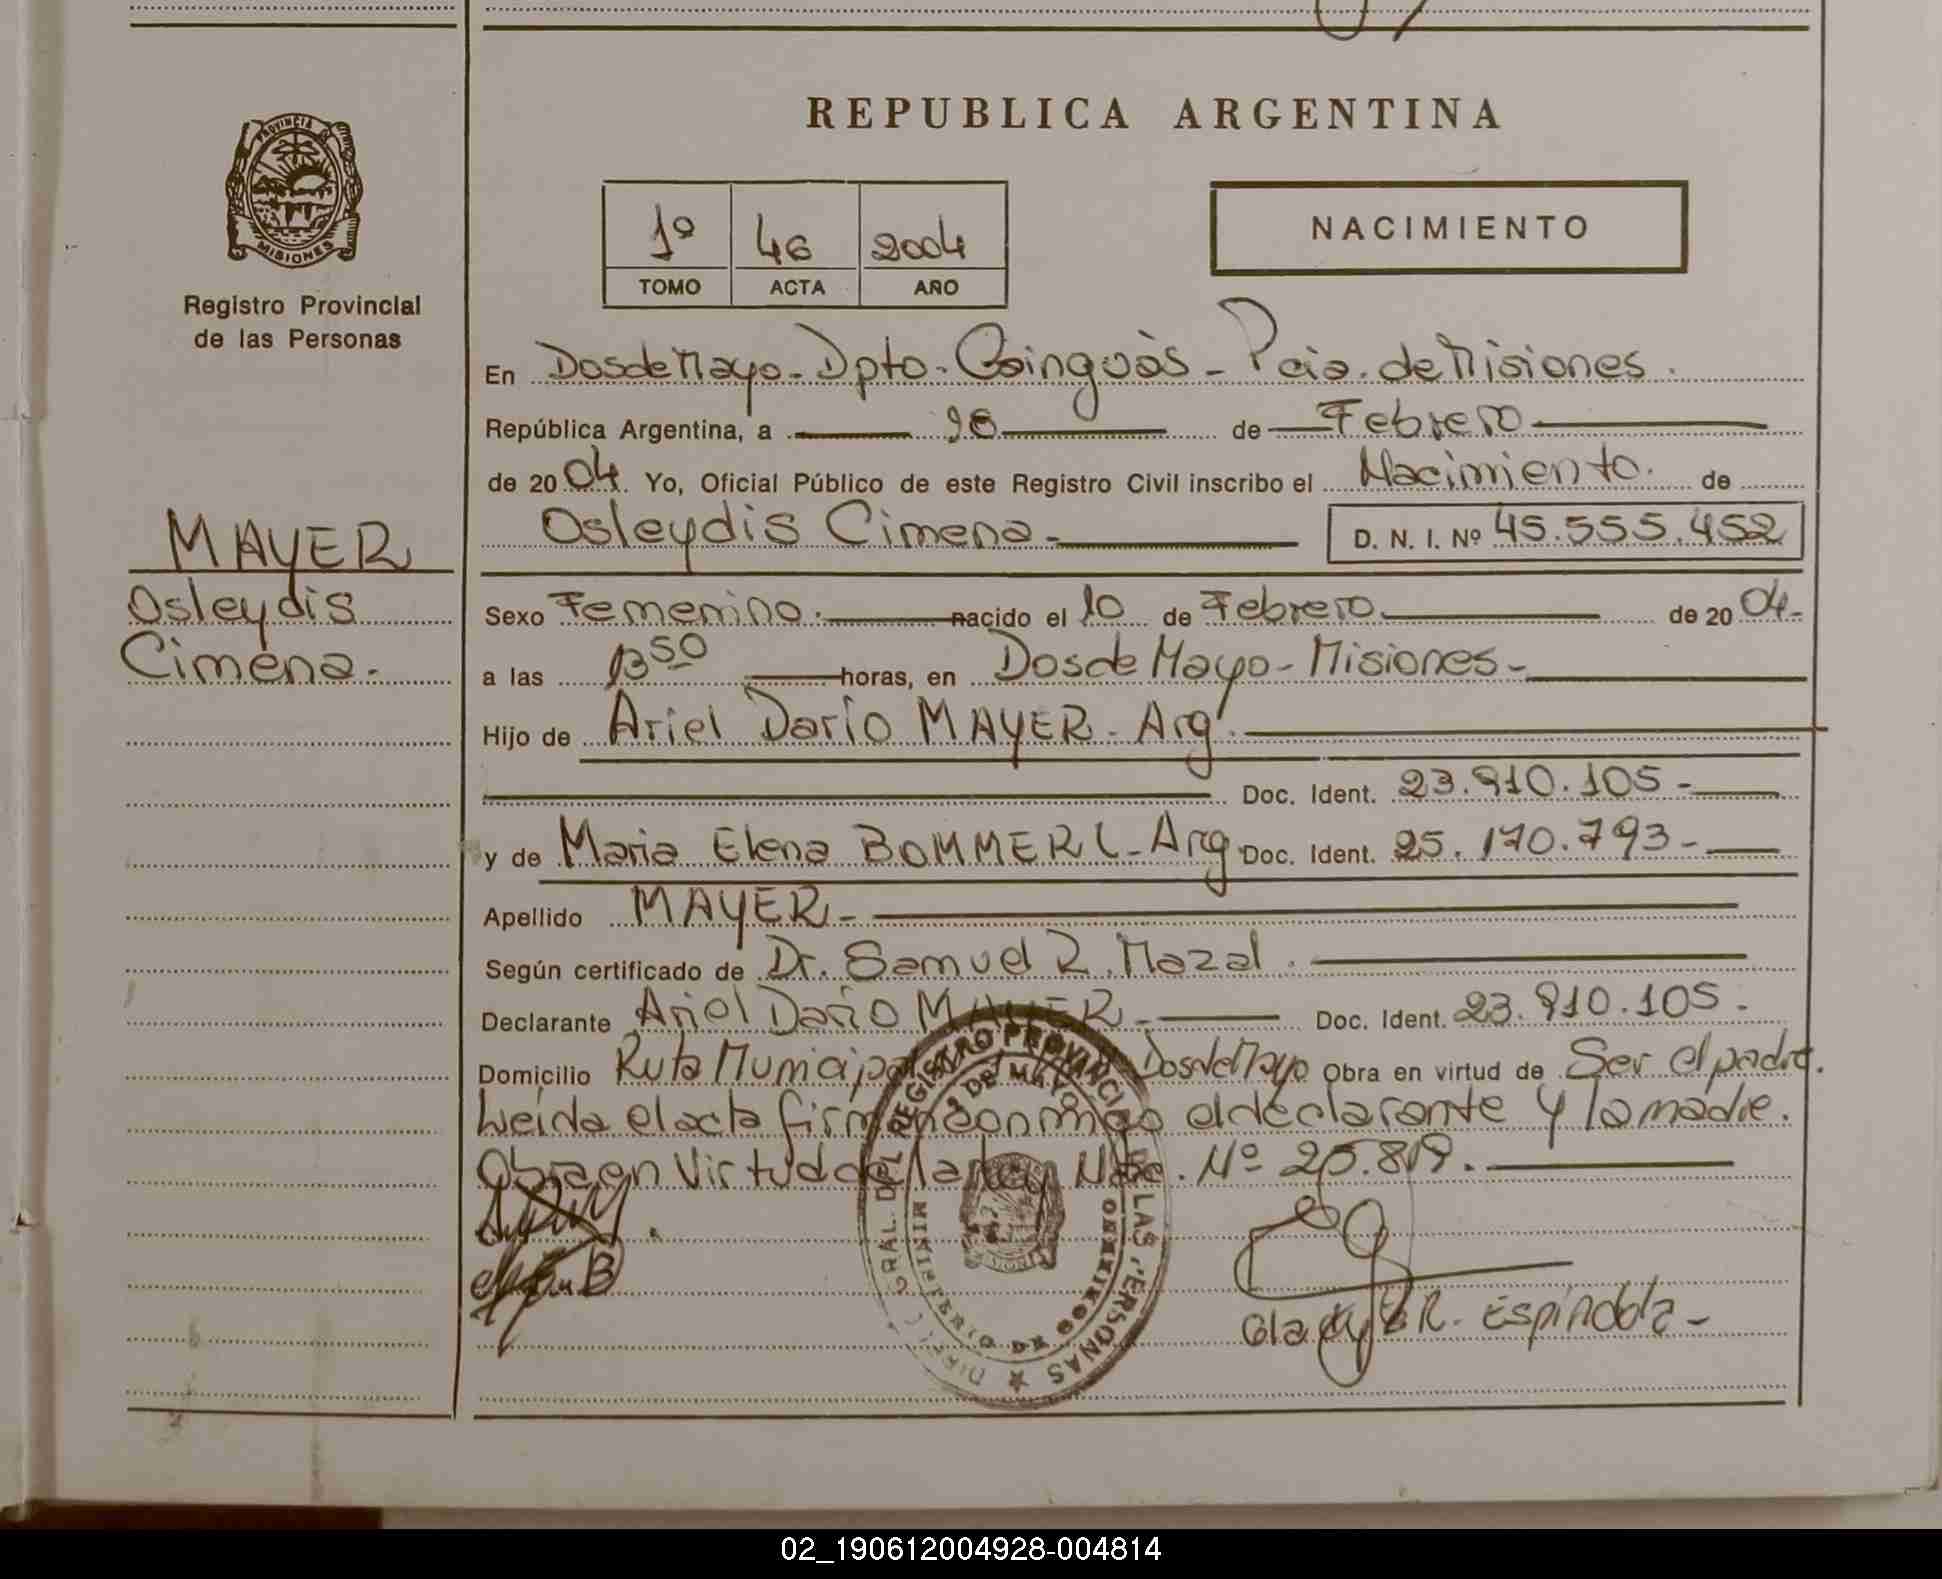 REPUBLICA ARGENTINA
PROVINCIA DE
MISIONES
Registro Provincial
de las Personas
1º 46 2004
TOMO ACTA AÑO
NACIMIENTO
En Dos de Mayo - Dpto. Cainguás - Pcia. de Misiones.
República Argentina, a de Febrero
de 2004. Yo, Oficial Público de este Registro Civil inscribo el Nacimiento. de
Osleydis Cimena - D. N. I. Nº 45.555.452
MAYER
Osleydis
Cimena.
Sexo Femenino. nacido el 10 de Febrero de 2004.
a las 13 50 horas, en Dos de Mayo - Misiones -
Hijo de Ariel Darío MAYER - Arg.
Doc. Ident. 23.910.105 -
y de Maria Elena BOMMERL - Arg. Doc. Ident. 25.170.793 -
Apellido MAYER -
Según certificado de Dr. Samuel R. Mazal.
Declarante Ariel Darío MAYER - Doc. Ident. 23.910.105.
Domicilio Ruta Municipal Dos de Mayo Obra en virtud de Ser el padre.
Leída el acta firman conmigo el declarante y la madre.
Obra en Virtud de la Ley Nac. Nº 25.819.
Gladys R. Espíndola -
02_190612004928-004814